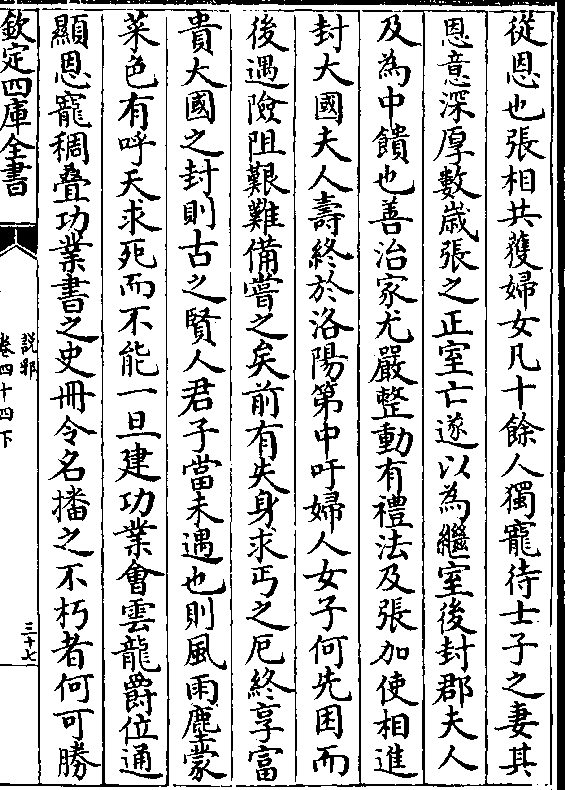 從恩也張相共獲婦女凡十餘人獨寵待士子之妻其
恩意深厚數歲張之正室亡遂以為繼室後封郡夫人
及為中饋也善治家尤嚴整動有禮法及張加使相進
封大國夫人壽終於洛陽第中吁婦人女子何先困而
後遇險阻艱難備嘗之矣前有失身求丐之厄終享富
貴大國之封則古之賢人君子當未遇也則風雨塵蒙
菜色有呼天求死而不能一旦建功業會雲龍爵位通
顯恩寵稠叠功業書之史冊令名播之不朽者何可勝
欽定四庫全書
說郛
卷四十四下
三十七